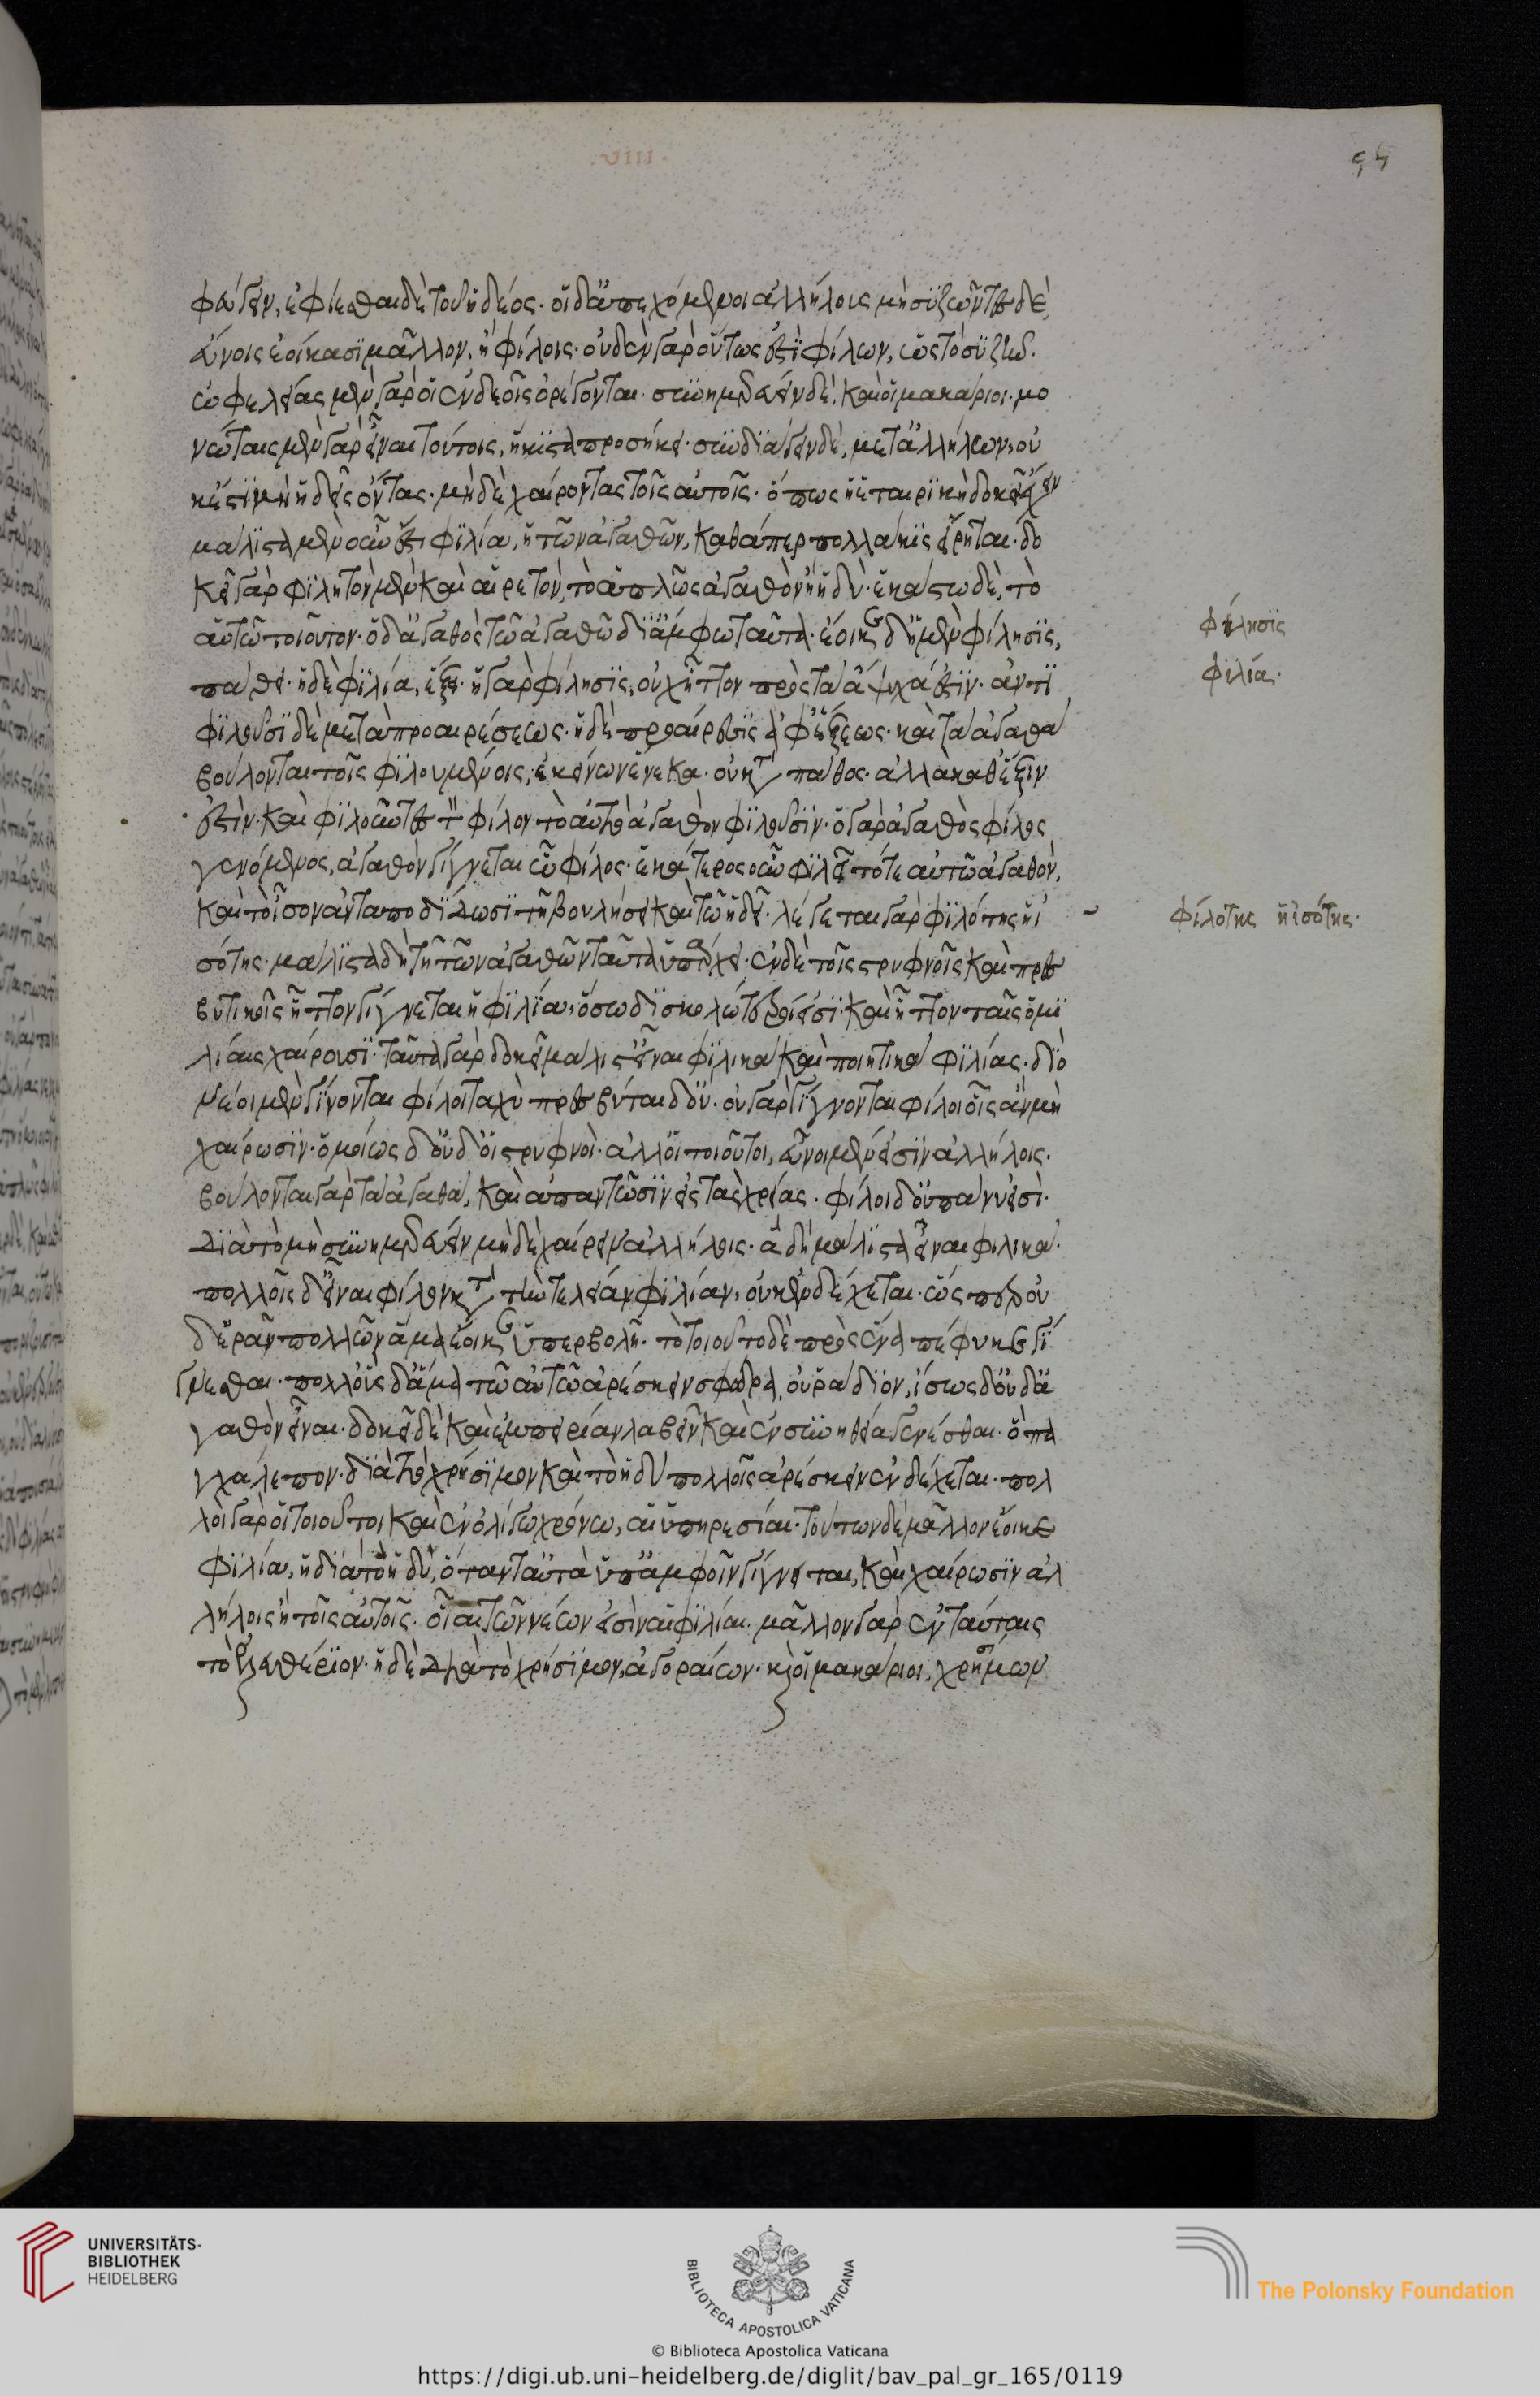 φεύγειν, ἐφίεσθαι δὲ τοῦ ἡδέος· οἱ δ' ἀποδεχόμενοι ἀλλήλους μὴ συζῶντες δὲ,
εὔνοις ἐοίκασι μᾶλλον, ἢ φίλοις· οὐδὲν γὰρ οὕτως ἐστὶ φίλων, ὡς τὸ συζῆν·
ὠφελείας μὲν γὰρ οἱ ἐνδεεῖς ὀρέγονται· συνημερεύειν δὲ, καὶ οἱ μακάριοι· μο
νώταις μὲν γὰρ εἶναι τούτοις, ἥκιστα προσήκει· συνδιάγειν δὲ, μετ' ἀλλήλων, οὐ
κ ἔστι μὴ ἡδεῖς ὄντας· μηδὲ χαίροντας τοῖς αὐτοῖς· ὅπερ ἡ ἑταιρικὴ δοκεῖ ἔχειν
μάλιστα μὲν οὖν ἐστι φιλία, ἡ τῶν ἀγαθῶν, καθάπερ πολλάκις εἴρηται· δο
κεῖ γὰρ φιλητὸν μὲν καὶ αἱρετόν, τὸ ἁπλῶς ἀγαθὸν ἢ ἡδύ· ἑκάστω δὲ, τὸ
αὑτῶ τοιοῦτον· ὁ δ' ἀγαθὸς τῶ ἀγαθῶ δι' ἄμφω ταῦτα· ἔοικε δ' ἡ μὲν φίλησις,
πάθει· ἡ δὲ φιλία, ἕξει· ἡ γὰρ φίλησις, οὐχ ἧττον πρὸς τὰ ἄψυχά ἐστιν· ἀντι
φιλοῦσι δὲ μετὰ προαιρέσεως· ἡ δὲ προαίρεσις ἀφ' ἕξεως· καὶ τἀγαθὰ
βούλονται τοῖς φιλουμένοις, ἐκείνων ἕνεκα· οὐ κατὰ πάθος· ἀλλὰ καθ' ἕξιν
ἐστίν· καὶ φιλοῦντες τὸν φίλον τὸ αὑτοῖς ἀγαθὸν φιλοῦσιν· ὁ γὰρ ἀγαθὸς φίλος
γενόμενος, ἀγαθὸν γίγνεται ὧ φίλος· ἑκάτερος οὖν φιλεῖ τό τε αὑτῶ ἀγαθόν,
καὶ τὸ ἴσον ἀνταποδίδωσι τῆ βουλήσει καὶ τῶ ἡδεῖ· λέγεται γὰρ φιλότης ἡ ἰ
σότης· μάλιστα δὴ τῆ τῶν ἀγαθῶν ταῦτα ὑπάρχει· ἐν δὲ τοῖς στρυφνοῖς καὶ πρεσ
βυτικοῖς ἧττον γίγνεται ἡ φιλία, ὅσω δυσκολώτεροί εἰσι· καὶ ἧττον ταῖς ὁμι
λίαις χαίρουσι· ταῦτα γὰρ δοκεῖ μάλιστ' εἶναι φιλικὰ καὶ ποιητικὰ φιλίας· διὸ
νέοι μὲν γίνονται φίλοι ταχὺ πρεσβύται δ' οὔ· οὐ γὰρ γίγνονται φίλοι οἷς ἂν μὴ
χαίρωσιν· ὁμοίως δ' οὐδ' οἱ στρυφνοί· ἀλλ' οἱ τοιοῦτοι, εὖνοι μέν εἰσιν ἀλλήλοις·
βούλονται γὰρ τἀγαθά, καὶ ἀπαντῶσιν εἰς τὰς χρείας· φίλοι δ' οὐ πάνυ εἰσὶ·
διὰ τὸ μὴ συνημερεύειν μηδὲ χαίρειν ἀλλήλοις· ἃ δὴ μάλιστα εἶναι φιλικά·
πολλοῖς δ' εἶναι φίλον κατὰ τὴν τελείαν φιλίαν, οὐκ ἐνδέχεται· ὥσπερ οὐ
δ' ἐρᾶν πολλῶν ἅμα· ἔοικε ὑπερβολῆ· τὸ τοιοῦτο δὲ πρὸς ἕνα πέφυκε γί
γνεσθαι· πολλοὺς δ' ἅμα τῶ αὐτῶ ἀρέσκειν σφόδρα, οὐ ῥάδιον, ἴσως δ' οὐδ' ἀ
γαθὸν εἶναι· δοκεῖ δὲ καὶ ἐμπειρίαν λαβεῖν καὶ ἐν συνηθεία γενέσθαι· ὃ πά
γχάλεπον· διὰ τὸ χρήσιμον καὶ τὸ ἡδὺ πολλοῖς ἀρέσκειν ἐνδέχεται· πολ
λοὶ γὰρ οἱ τοιοῦτοι καὶ ἐν ὀλίγω χρόνω, αἱ ὑπηρεσίαι· τούτων δὲ μᾶλλον ἔοικε
φιλία, ἡ διὰ τὸ ἡδύ, ὅταν ταὐτὰ ὑπ' ἀμφοῖν γίγνεται, καὶ χαίρωσιν ἀλ
λήλοις ἢ τοῖς αὐτοῖς· οἷαι τῶν νέων εἰσὶν αἱ φιλίαι· μᾶλλον γὰρ ἐν ταύταις
τὸ ἐλευθέριον· ἡ δὲ διὰ τὸ χρήσιμον, ἀγοραίων· καὶ οἱ μακάριοι, χρησίμων
φίλησις
φιλία·
φιλότης ἡ ἰσότης·
UNIVERSITÄTS-
BIBLIOTHEK
HEIDELBERG
BIBLIOTECA APOSTOLICA VATICANA
The Polonsky Foundation
© Biblioteca Apostolica Vaticana
https://digi.ub.uni-heidelberg.de/diglit/bav_pal_gr_165/0119